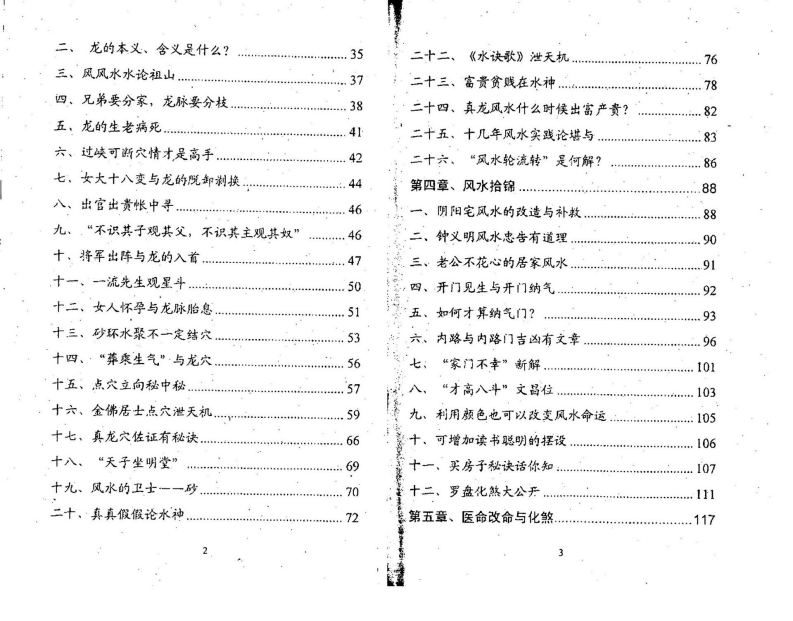 二、 龙的本义、含义是什么? 35
三、风风水水论祖山 37
四、兄弟要分家，龙脉要分枝 38
五、龙的生老病死 41
六、过峡可断穴情才是高手 42
七、女大十八变与龙的脱卸剥换 44
八、出官出贵帐中寻 46
九、“不识其子观其父，不识其主观其奴” 46
十、将军出阵与龙的入首 47
十一、一流先生观星斗 50
十二、女人怀孕与龙脉胎息 51
十三、砂环水聚不一定结穴 53
十四、“葬乘生气”与龙穴 56
十五、点穴立向秘中秘 57
十六、金佛居士点穴泄天机 59
十七、真龙穴佐证有秘诀 66
十八、“天子坐明堂” 69
十九、风水的卫士——砂 70
二十、真真假假论水神 72
2
二十二、《水诀歌》泄天机 76
二十三、富贵贫贱在水神 78
二十四、真龙风水什么时候出富产贵? 82
二十五、十几年风水实践论堪与 83
二十六、“风水轮流转”是何解? 86
第四章、风水拾锦 88
一、阴阳宅风水的改造与补救 88
二、钟义明风水忠告有道理 90
三、老公不花心的居家风水 91
四、开门见生与开门纳气 92
五、如何才算纳气门? 93
六、内路与内路门吉凶有文章 96
七、“家门不幸”新解 101
八、“才高八斗”文昌位 103
九、利用颜色也可以改变风水命运 105
十、可增加读书聪明的摆设 106
十一、买房子秘诀话你知 107
十二、罗盘化煞大公开 111
第五章、医命改命与化煞 117
3